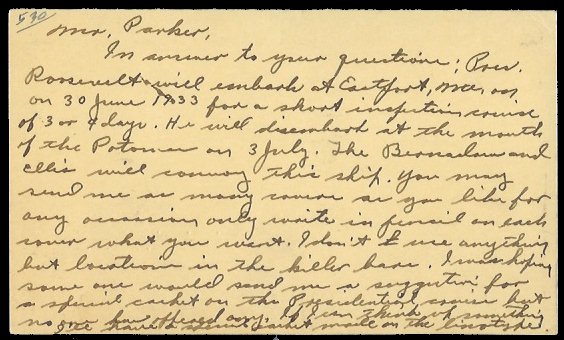 530
Mr. Parker,
In answer to your questions; Pres.
Roosevelt will embark at Eastport, Me, on
on 30 June 1933 for a short inspection cruise
of 3 or 4 days. He will disembark at the mouth
of the Potomac on 3 July. The Bernadou and
Ellis will convoy this ship. You may
send me as many covers as you like for
any occasion only write in pencil on each
cover what you want. I don't use anything
but locations in the killer bars. I was hoping
some one would send me a suggestion for
a special cachet on the Presidential cruise but
no one has offered any. If I can think of something
I'll have a special cachet made on the